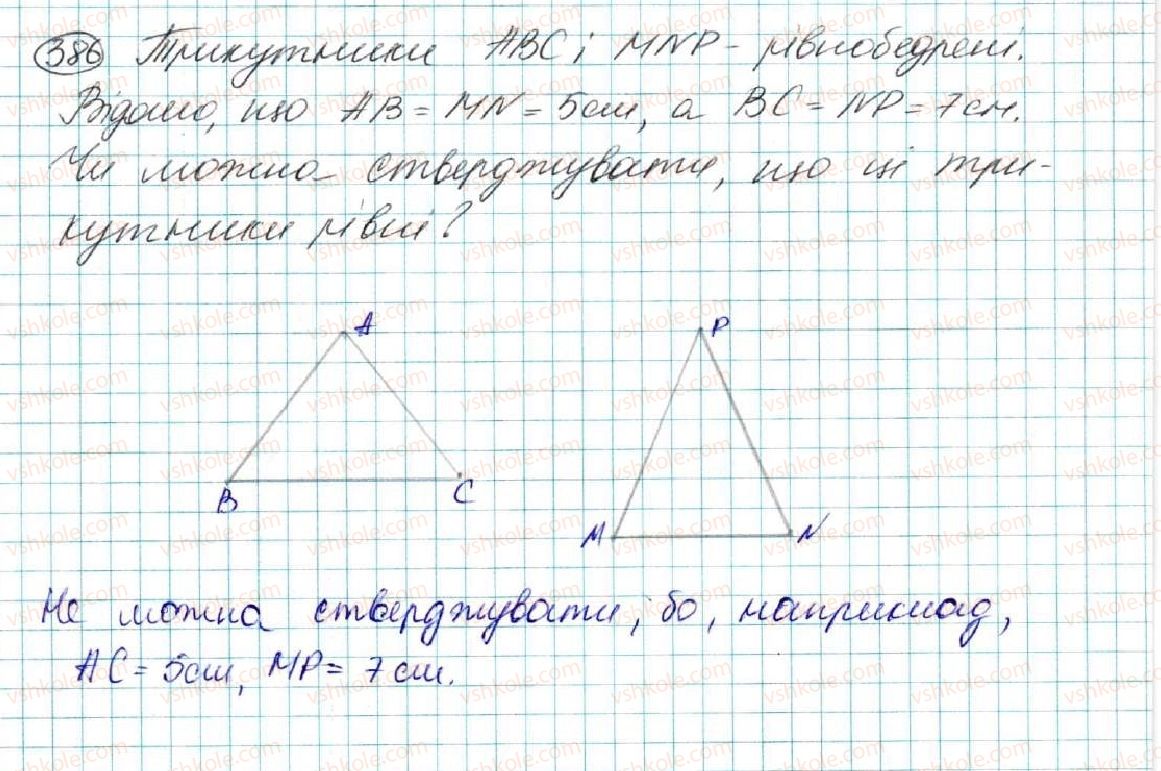 386 Трикутники ABC і MNP - рівнобедрені.
Відомо, що AB = MN = 5см, а BC = NP = 7см.
Чи можна стверджувати, що ці три-
кутники рівні?
A
P
B
C
M
N
Не можна стверджувати, бо, наприклад,
AC = 5см, MP = 7см.
vshkole.com